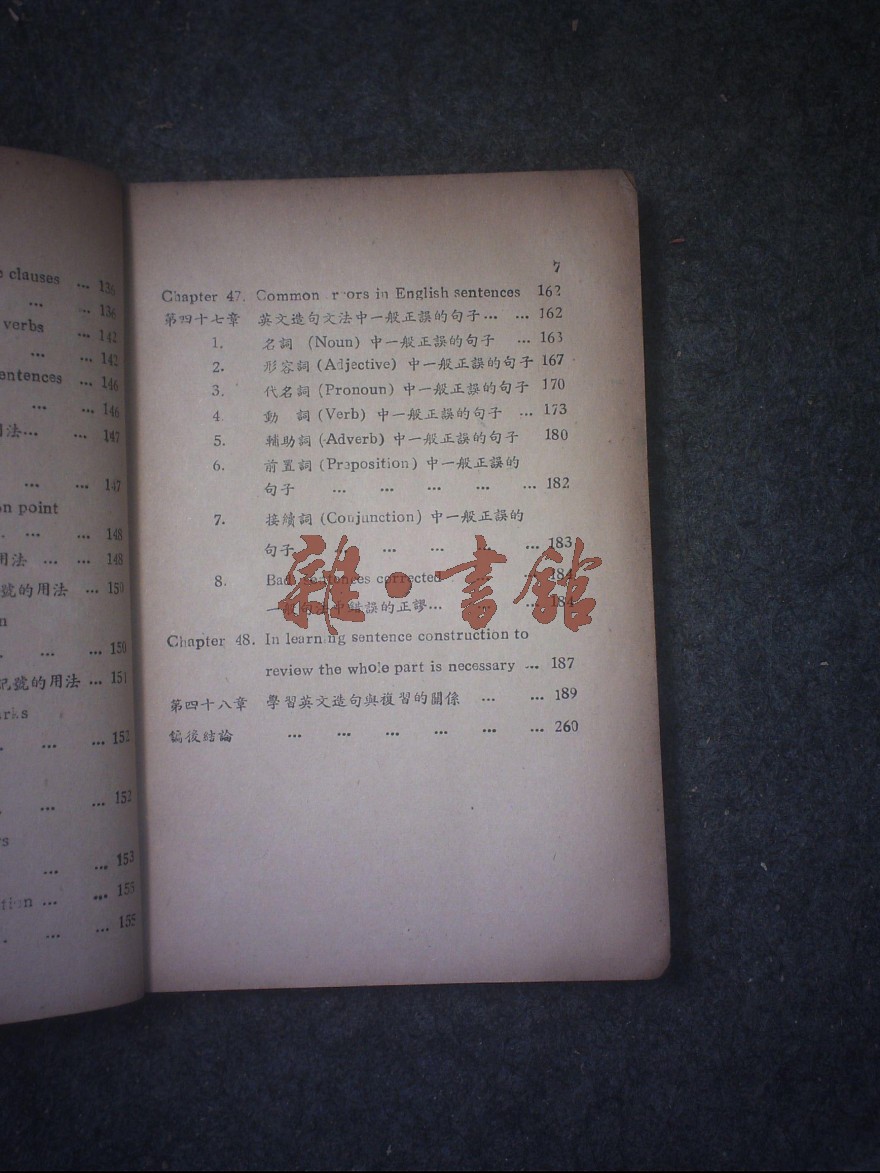 clauses ... 136
... ... 136
verbs ... 142
... ... 142
sentences ... 146
... ... 146
用法... ... 147
... ... 147
on point
... ... 148
用法 ... ... 148
號的用法 ... 150
... ... 150
記號的用法 ... 151
... ... 152
... ... 152
... ... 153
... ... 155
... ... 155
7
Chapter 47. Common errors in English sentences 162
第四十七章 英文造句文法中一般正誤的句子... ... 162
1. 名詞 (Noun) 中一般正誤的句子 ... 163
2. 形容詞 (Adjective) 中一般正誤的句子 167
3. 代名詞 (Pronoun) 中一般正誤的句子 170
4. 動 詞 (Verb) 中一般正誤的句子 ... 173
5. 輔助詞 (Adverb) 中一般正誤的句子 180
6. 前置詞 (Preposition) 中一般正誤的
句子 ... ... ... ... ... 182
7. 接續詞 (Conjunction) 中一般正誤的
句子 ... ... ... ... ... 183
8. Bad sentences corrected ... ... 184
一般句法中錯誤的正謬... ... ... 184
Chapter 48. In learning sentence construction to
review the whole part is necessary ... 187
第四十八章 學習英文造句與複習的關係 ... ... 189
編後結論 ... ... ... ... ... ... 260
雜·書館